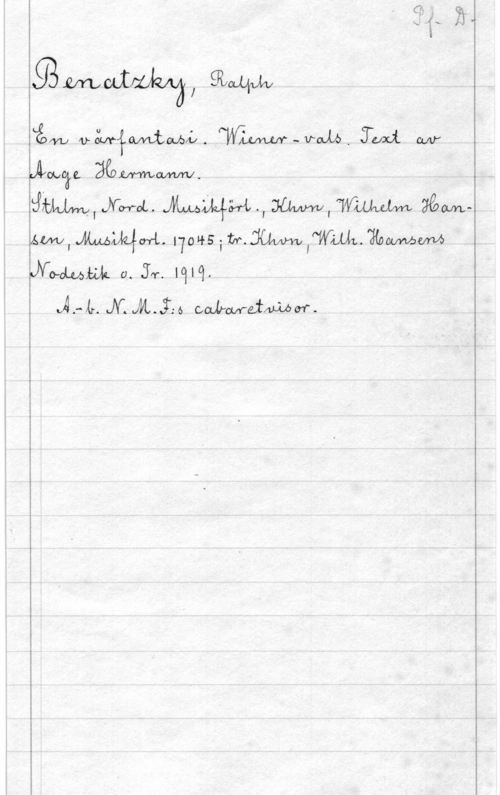 Pf. D.
Benatzky, Ralph
En vårfantasi. Wiener-vals. Text av
Aage Hermann.
Sthlm, Nord. Musikförl., Khvn, Wilhelm Han-
sen, Musikforl. 17045; tr. Khvn, Wilh. Hansens
Nodestik o. Tr. 1919.
A.-b. N.M.F:s cabaretvisor.